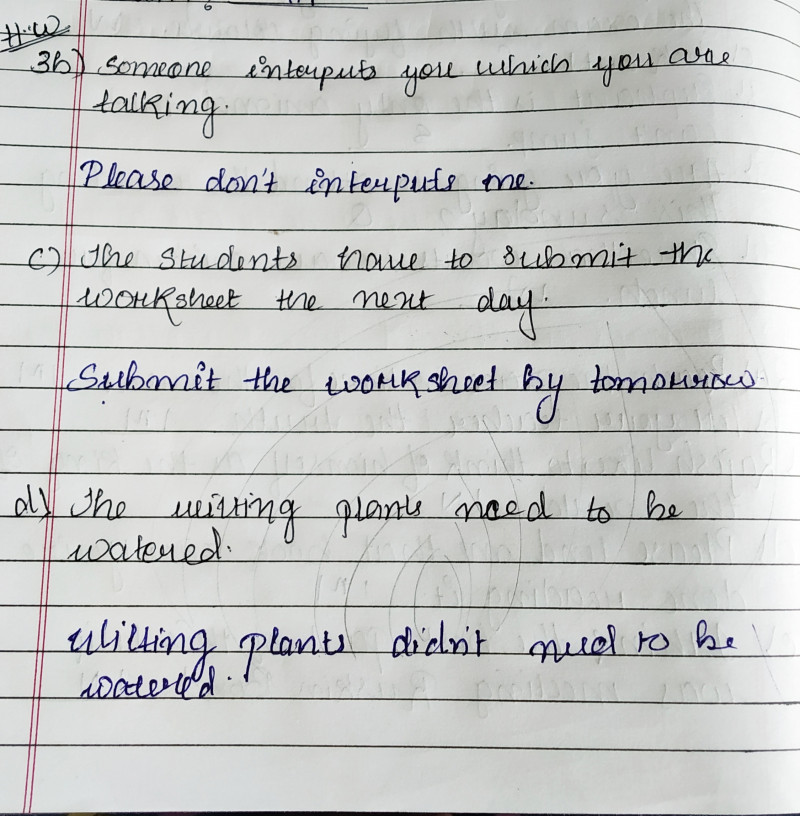 H.W
3b) Someone interputs you which you are
talking.
Please don't interputs me.
c) The students have to submit the
worksheet the next day.
Submit the worksheet by tomorrow.
d) The wilting plants need to be
watered.
Wilting plants didn't need to be
watered.